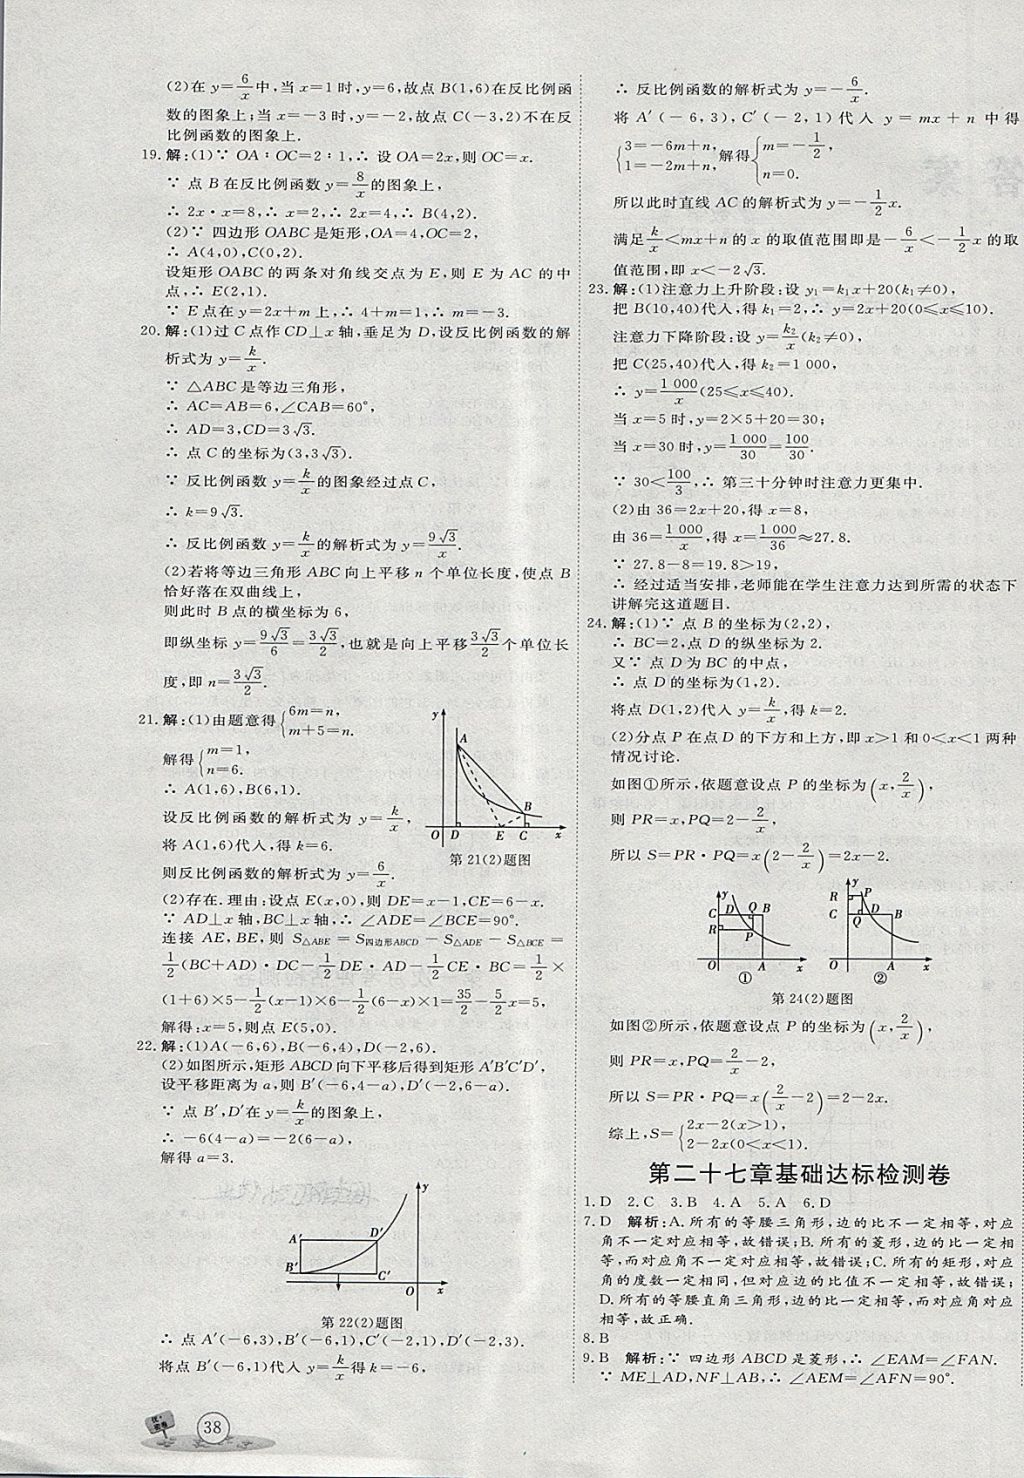 (2)在 y=6/x中,当 x=1 时,y=6,故点 B(1,6)在反比例函
数的图象上;当 x=-3 时,y=-2,故点 C(-3,2)不在反
比例函数的图象上.
19.解:(1)∵ OA∶OC=2∶1,∴ 设 OA=2x,则 OC=x.
∵ 点 B 在反比例函数 y=8/x的图象上,
∴ 2x·x=8,∴ x=2,∴ 2x=4,∴ B(4,2).
(2)∵ 四边形 OABC 是矩形,OA=4,OC=2,
∴ A(4,0),C(0,2).
设矩形 OABC 的两条对角线交点为 E,则 E 为 AC 的中
点,∴ E(2,1).
∵ E 点在 y=2x+m 上,∴ 4+m=1,∴ m=-3.
20.解:(1)过 C 点作 CD⊥x 轴,垂足为 D,设反比例函数的解
析式为 y=k/x.
∵ △ABC 是等边三角形,
∴ AC=AB=6,∠CAB=60°,
∴ AD=3,CD=3√3.
∴ 点 C 的坐标为(3,3√3).
∵ 反比例函数 y=k/x的图象经过点 C,
∴ k=9√3.
∴ 反比例函数 y=k/x的解析式为 y=9√3/x.
(2)若将等边三角形 ABC 向上平移 n 个单位长度,使点 B
恰好落在双曲线上,
则此时 B 点的横坐标为 6,
即纵坐标 y=9√3/6=3√3/2,也就是向上平移3√3/2个单位长
度,即 n=3√3/2.
21.解:(1)由题意得{6m=n, m+5=n.
解得{m=1, n=6.
∴ A(1,6),B(6,1).
设反比例函数的解析式为 y=k/x,
将 A(1,6)代人,得 k=6.
则反比例函数的解析式为 y=6/x.
y A B O D E C x
第 21(2)题图
(2)存在.理由:设点 E(x,0),则 DE=x-1,CE=6-x.
∵ AD⊥x 轴,BC⊥x 轴,∴ ∠ADE=∠BCE=90°.
连接 AE,BE,则 S△ABE=S四边形ABCD-S△ADE-S△BCE=
1/2(BC+AD)·DC-1/2DE·AD-1/2CE·BC=1/2×
(1+6)×5-1/2(x-1)×6-1/2(6-x)×1=35/2-5/2x=5,
解得:x=5,则点 E(5,0).
22.解:(1)A(-6,6),B(-6,4),D(-2,6).
(2)如图所示,矩形 ABCD 向下平移后得到矩形 A′B′C′D′,
设平移距离为 a,则 B′(-6,4-a),D′(-2,6-a).
∵ 点 B′,D′在 y=k/x的图象上,
∴ -6(4-a)=-2(6-a),
解得 a=3.
y A′ D′ B′ C′ O x
第 22(2)题图
∴ 点 A′(-6,3),B′(-6,1),C′(-2,1),D′(-2,3).
将点 B′(-6,1)代人 y=k/x得 k=-6,
38
∴ 反比例函数的解析式为 y=-6/x.
将 A′(-6,3),C′(-2,1)代人 y=mx+n 中得
{3=-6m+n, 1=-2m+n,解得{m=-1/2, n=0.
所以此时直线 AC 的解析式为 y=-1/2x.
满足k/x<mx+n 的 x 的取值范围即是-6/x<-1/2x 的取
值范围,即 x<-2√3.
23.解:(1)注意力上升阶段:设 y1=k1x+20(k1≠0),
把 B(10,40)代人,得 k1=2,∴ y=2x+20(0≤x≤10).
注意力下降阶段:设 y=k2/x(k2≠0),
把 C(25,40)代人,得 k2=1 000,
∴ y=1 000/x(25≤x≤40).
当 x=5 时,y=2×5+20=30;
当 x=30 时,y=1 000/30=100/30.
∵ 30<100/3,∴ 第三十分钟时注意力更集中.
(2)由 36=2x+20,得 x=8,
由 36=1 000/x,得 x=1 000/36≈27.8.
∵ 27.8-8=19.8>19,
∴ 经过适当安排,老师能在学生注意力达到所需的状态下
讲解完这道题目.
24.解:(1)∵ 点 B 的坐标为(2,2),
∴ BC=2,点 D 的纵坐标为 2.
又∵ 点 D 为 BC 的中点,
∴ 点 D 的坐标为(1,2).
将点 D(1,2)代人 y=k/x,得 k=2.
(2)分点 P 在点 D 的下方和上方,即 x>1 和 0<x<1 两种
情况讨论.
如图①所示,依题意设点 P 的坐标为(x,2/x),
则 PR=x,PQ=2-2/x,
所以 S=PR·PQ=x(2-2/x)=2x-2.
y C D Q B R P O A x ①
y R P C Q D B O A x ②
第 24(2)题图
如图②所示,依题意设点 P 的坐标为(x,2/x),
则 PR=x,PQ=2/x-2,
所以 S=PR·PQ=x(2/x-2)=2-2x.
综上,S={2x-2(x>1), 2-2x(0<x<1).
第二十七章基础达标检测卷
1.D 2.C 3.B 4.A 5.A 6.D
7.D 解析:A.所有的等腰三角形,边的比不一定相等,对应
角不一定对应相等,故错误;B.所有的菱形,边的比一定相
等,而对应角不一定对应相等,故错误;C.所有的矩形,对应
角的度数一定相同,但对应边的比值不一定相等,故错误;
D.所有的等腰直角三角形,边的比一定相等,而对应角对应
相等,故正确.
8.B
9.B 解析:∵ 四边形 ABCD 是菱形,∴ ∠EAM=∠FAN.
∵ ME⊥AD,NF⊥AB,∴ ∠AEM=∠AFN=90°.